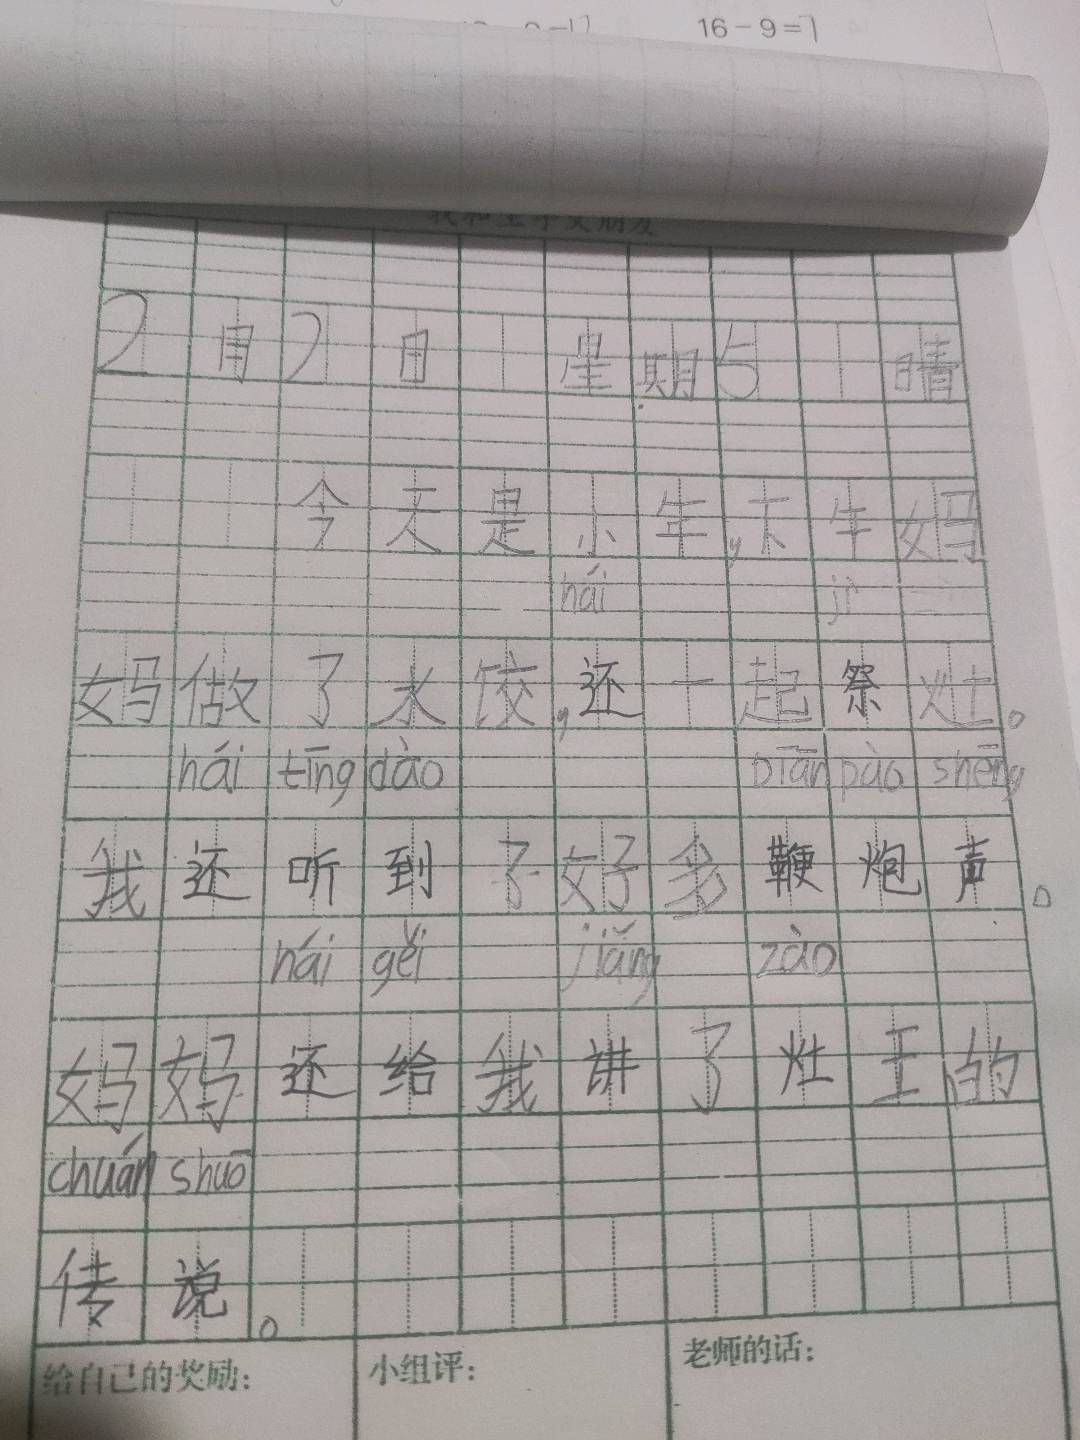 16-9=7
我和主
2月2日 星期5 晴
今天是小年,下午妈
hái jì
妈做了水饺,还一起祭灶。
hái tīng dào biān pào shēng
我还听到了好多鞭炮声。
hái gěi jiǎng zào
妈妈还给我讲了灶王的
chuán shuō
传说。
给自己的奖励: 小组评: 老师的话: